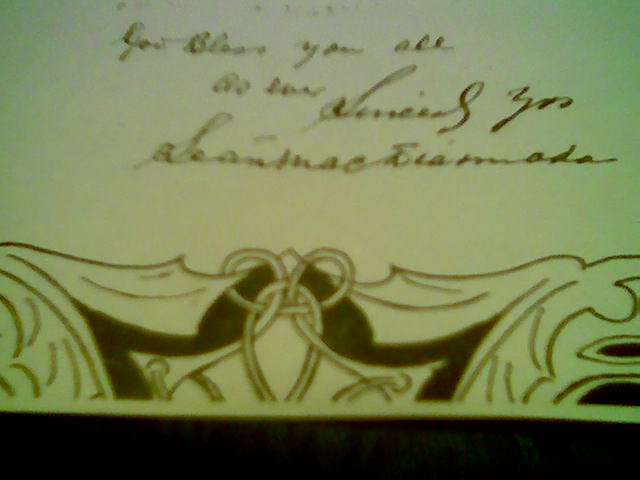 God Bless you all
as ever Sincerely Yrs
Seán Mac Diarmada